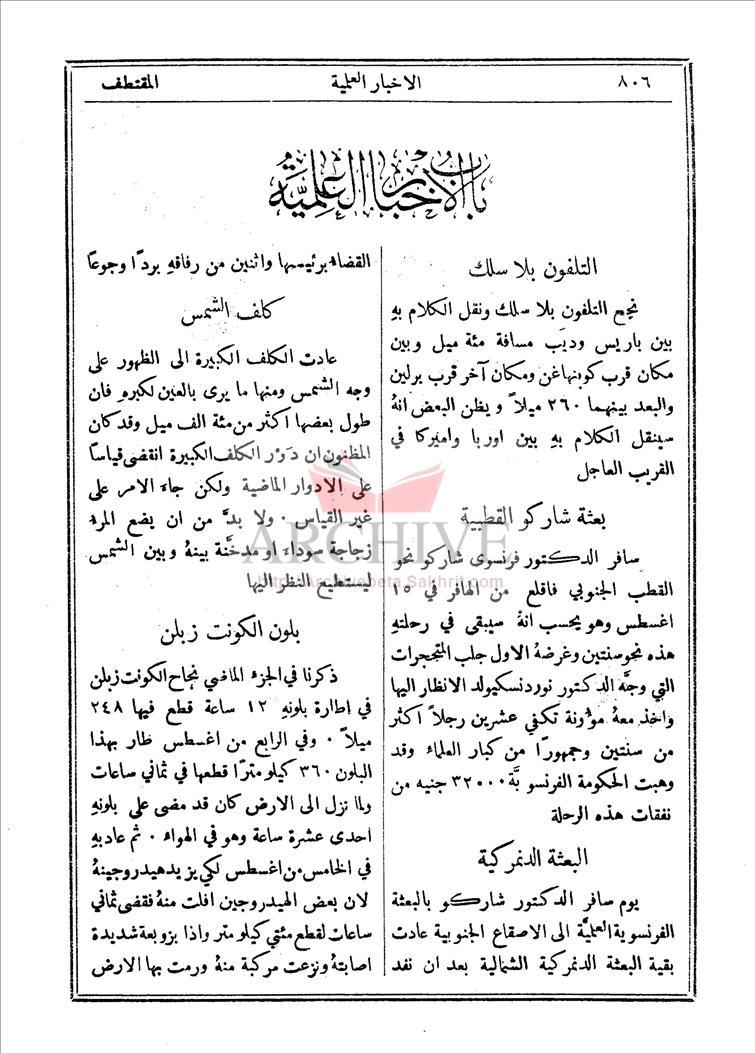 ٨٠٦
الاخبار العلمية
المقتطف
باب الاخبار العلمية
التلفون بلا سلك
نجح التلفون بلا سلك ونقل الكلام بهِ
بين باريس وديَب مسافة مئة ميل وبين
مكان قرب كوبنهاغن ومكان آخر قرب برلين
والبعد بينهما ٢٦٠ ميلاً ويظن البعض انهُ
سينقل الكلام بهِ بين اوربا واميركا في
القريب العاجل
بعثة شاركو القطبية
سافر الدكتور فرنسوى شاركو نحو
القطب الجنوبي فاقلع من الهافر في ١٥
اغسطس وهو يحسب انهُ سيبقى في رحلتهِ
هذه نحو سنتين وغرضهُ الاول جلب المتحجرات
التي وجَّه الدكتور نوردنسكيولد الانظار اليها
واخذ معهُ مؤونة تكفي عشرين رجلاً اكثر
من سنتين وجمهورًا من كبار العلماء وقد
وهبت الحكومة الفرنسويَّة ٣٢٠٠٠ جنيه من
نفقات هذه الرحلة
البعثة الدنمركية
يوم سافر الدكتور شاركو بالبعثة
الفرنسوية العلميَّة الى الاصقاع الجنوبية عادت
بقية البعثة الدنمركية الشمالية بعد ان نفد
القضاء برئيسها واثنين من رفاقهِ بردًا وجوعًا
كلف الشمس
عادت الكلف الكبيرة الى الظهور على
وجه الشمس ومنها ما يرى بالعين لكبرهِ فان
طول بعضها اكثر من مئة الف ميل وقد كان
المظنون ان دَوْر الكلف الكبيرة انقضى قياسًا
على الادوار الماضية ولكن جاءَ الامر على
غير القياس . ولا بدَّ من ان يضع المرء
زجاجة سوداءَ او مدخَّنة بينهُ وبين الشمس
ليستطيع النظر اليها
بلون الكونت زبلن
ذكرنا في الجزء الماضي نجاح الكونت زبلن
في اطارة بلونهِ ١٢ ساعة قطع فيها ٢٤٨
ميلاً . وفي الرابع من اغسطس طار بهذا
البلون ٣٦٠ كيلو مترًا قطعها في ثماني ساعات
ولما نزل الى الارض كان قد مضى على بلونهِ
احدى عشرة ساعة وهو في الهواء . ثم عاد بهِ
في الخامس من اغسطس لكي يزيد هيدروجينهُ
لان بعض الهيدروجين افلت منهُ فقضى ثماني
ساعات لقطع مئتي كيلو متر واذا بزوبعة شديدة
اصابتهُ ونزعت مركبة منهُ ورمت بها الارض
ARCHIVE
http://Archivebeta.Sakhrit.com